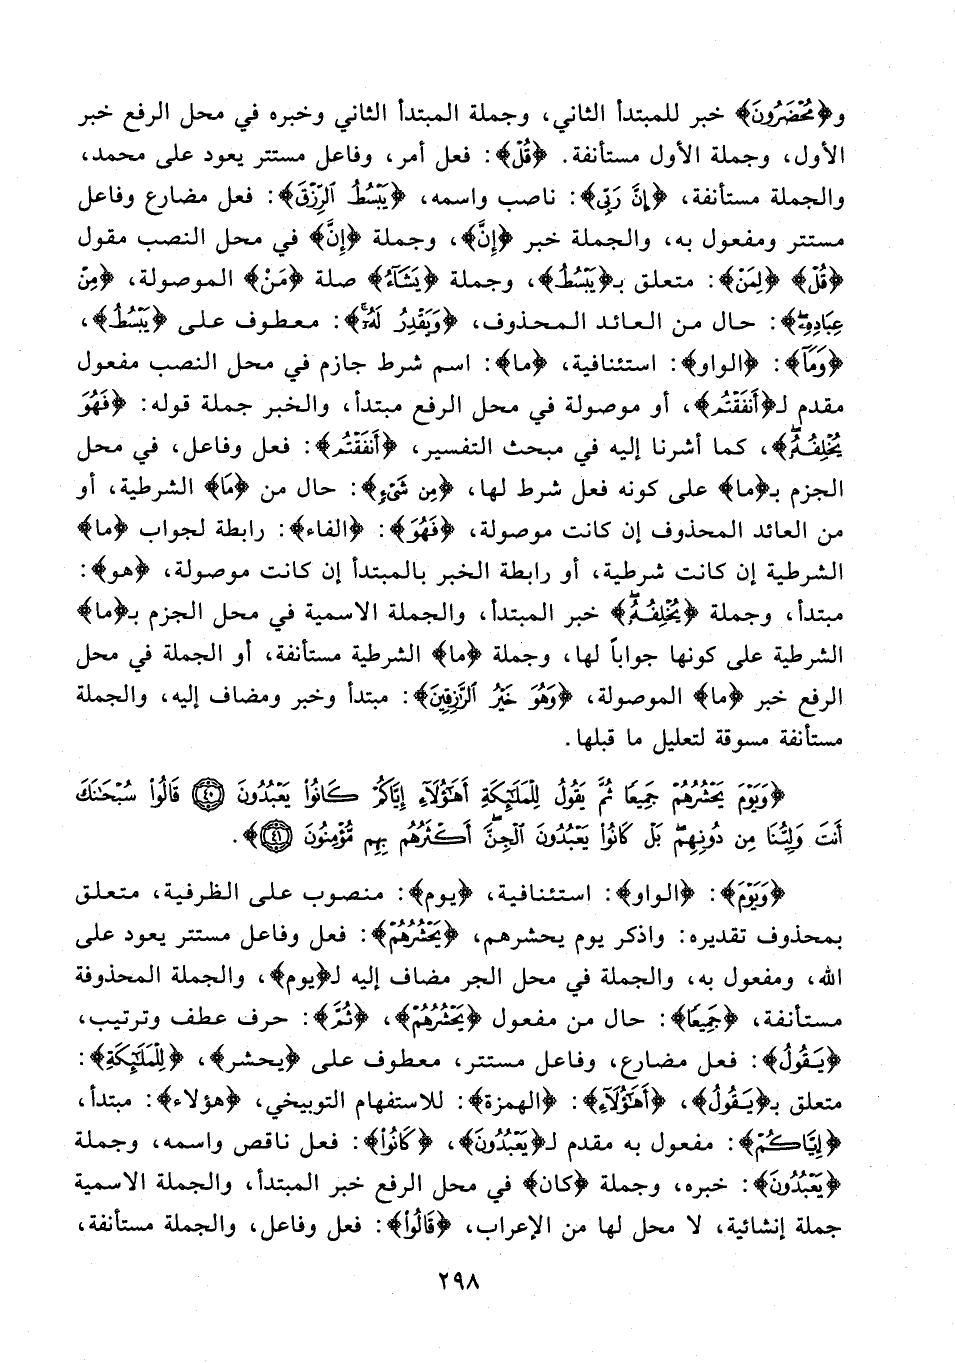 و﴿مُحْضَرُونَ﴾ خبر للمبتدأ الثاني، وجملة المبتدأ الثاني وخبره في محل الرفع خبر
الأول، وجملة الأول مستأنفة. ﴿قُلْ﴾: فعل أمر، وفاعل مستتر يعود على محمد،
والجملة مستأنفة، ﴿إِنَّ رَبِّي﴾: ناصب واسمه، ﴿يَبْسُطُ الرِّزْقَ﴾: فعل مضارع وفاعل
مستتر ومفعول به، والجملة خبر ﴿إِنَّ﴾، وجملة ﴿إِنَّ﴾ في محل النصب مقول
﴿قُلْ﴾ ﴿لِمَنْ﴾: متعلق بـ﴿يَبْسُطُ﴾، وجملة ﴿يَشَآءُ﴾ صلة ﴿مَنْ﴾ الموصولة، ﴿مِنْ
عِبَادِهِۦ﴾: حال من العائد المحذوف، ﴿وَيَقْدِرُ لَهُۥ﴾: معطوف على ﴿يَبْسُطُ﴾،
﴿وَمَآ﴾: ﴿الواو﴾: استئنافية، ﴿ما﴾: اسم شرط جازم في محل النصب مفعول
مقدم لـ﴿أَنفَقْتُم﴾، أو موصولة في محل الرفع مبتدأ، والخبر جملة قوله: ﴿فَهُوَ
يُخْلِفُهُۥ﴾، كما أشرنا إليه في مبحث التفسير، ﴿أَنفَقْتُم﴾: فعل وفاعل، في محل
الجزم بـ﴿ما﴾ على كونه فعل شرط لها، ﴿مِن شَىْءٍ﴾: حال من ﴿مَا﴾ الشرطية، أو
من العائد المحذوف إن كانت موصولة، ﴿فَهُوَ﴾: ﴿الفاء﴾: رابطة لجواب ﴿ما﴾
الشرطية إن كانت شرطية، أو رابطة الخبر بالمبتدأ إن كانت موصولة، ﴿هو﴾:
مبتدأ، وجملة ﴿يُخْلِفُهُۥ﴾ خبر المبتدأ، والجملة الاسمية في محل الجزم بـ﴿ما﴾
الشرطية على كونها جواباً لها، وجملة ﴿ما﴾ الشرطية مستأنفة، أو الجملة في محل
الرفع خبر ﴿ما﴾ الموصولة، ﴿وَهُوَ خَيْرُ ٱلرَّٰزِقِينَ﴾: مبتدأ وخبر ومضاف إليه، والجملة
مستأنفة مسوقة لتعليل ما قبلها.
﴿وَيَوْمَ يَحْشُرُهُمْ جَمِيعًا ثُمَّ يَقُولُ لِلْمَلَٰٓئِكَةِ أَهَٰٓؤُلَآءِ إِيَّاكُمْ كَانُوا۟ يَعْبُدُونَ ٤٠ قَالُوا۟ سُبْحَٰنَكَ
أَنتَ وَلِيُّنَا مِن دُونِهِم بَلْ كَانُوا۟ يَعْبُدُونَ ٱلْجِنَّ أَكْثَرُهُم بِهِم مُّؤْمِنُونَ ٤١﴾.
﴿وَيَوْمَ﴾: ﴿الواو﴾: استئنافية، ﴿يوم﴾: منصوب على الظرفية، متعلق
بمحذوف تقديره: واذكر يوم يحشرهم، ﴿يَحْشُرُهُمْ﴾: فعل وفاعل مستتر يعود على
الله، ومفعول به، والجملة في محل الجر مضاف إليه لـ﴿يوم﴾، والجملة المحذوفة
مستأنفة، ﴿جَمِيعًا﴾: حال من مفعول ﴿يَحْشُرُهُمْ﴾، ﴿ثُمَّ﴾: حرف عطف وترتيب،
﴿يَقُولُ﴾: فعل مضارع، وفاعل مستتر، معطوف على ﴿يحشر﴾، ﴿لِلْمَلَٰٓئِكَةِ﴾:
متعلق بـ﴿يَقُولُ﴾، ﴿أَهَٰٓؤُلَآءِ﴾: ﴿الهمزة﴾: للاستفهام التوبيخي، ﴿هؤلاء﴾: مبتدأ،
﴿إِيَّاكُمْ﴾: مفعول به مقدم لـ﴿يَعْبُدُونَ﴾، ﴿كَانُوا۟﴾: فعل ناقص واسمه، وجملة
﴿يَعْبُدُونَ﴾: خبره، وجملة ﴿كان﴾ في محل الرفع خبر المبتدأ، والجملة الاسمية
جملة إنشائية، لا محل لها من الإعراب، ﴿قَالُوا۟﴾: فعل وفاعل، والجملة مستأنفة،
٢٩٨